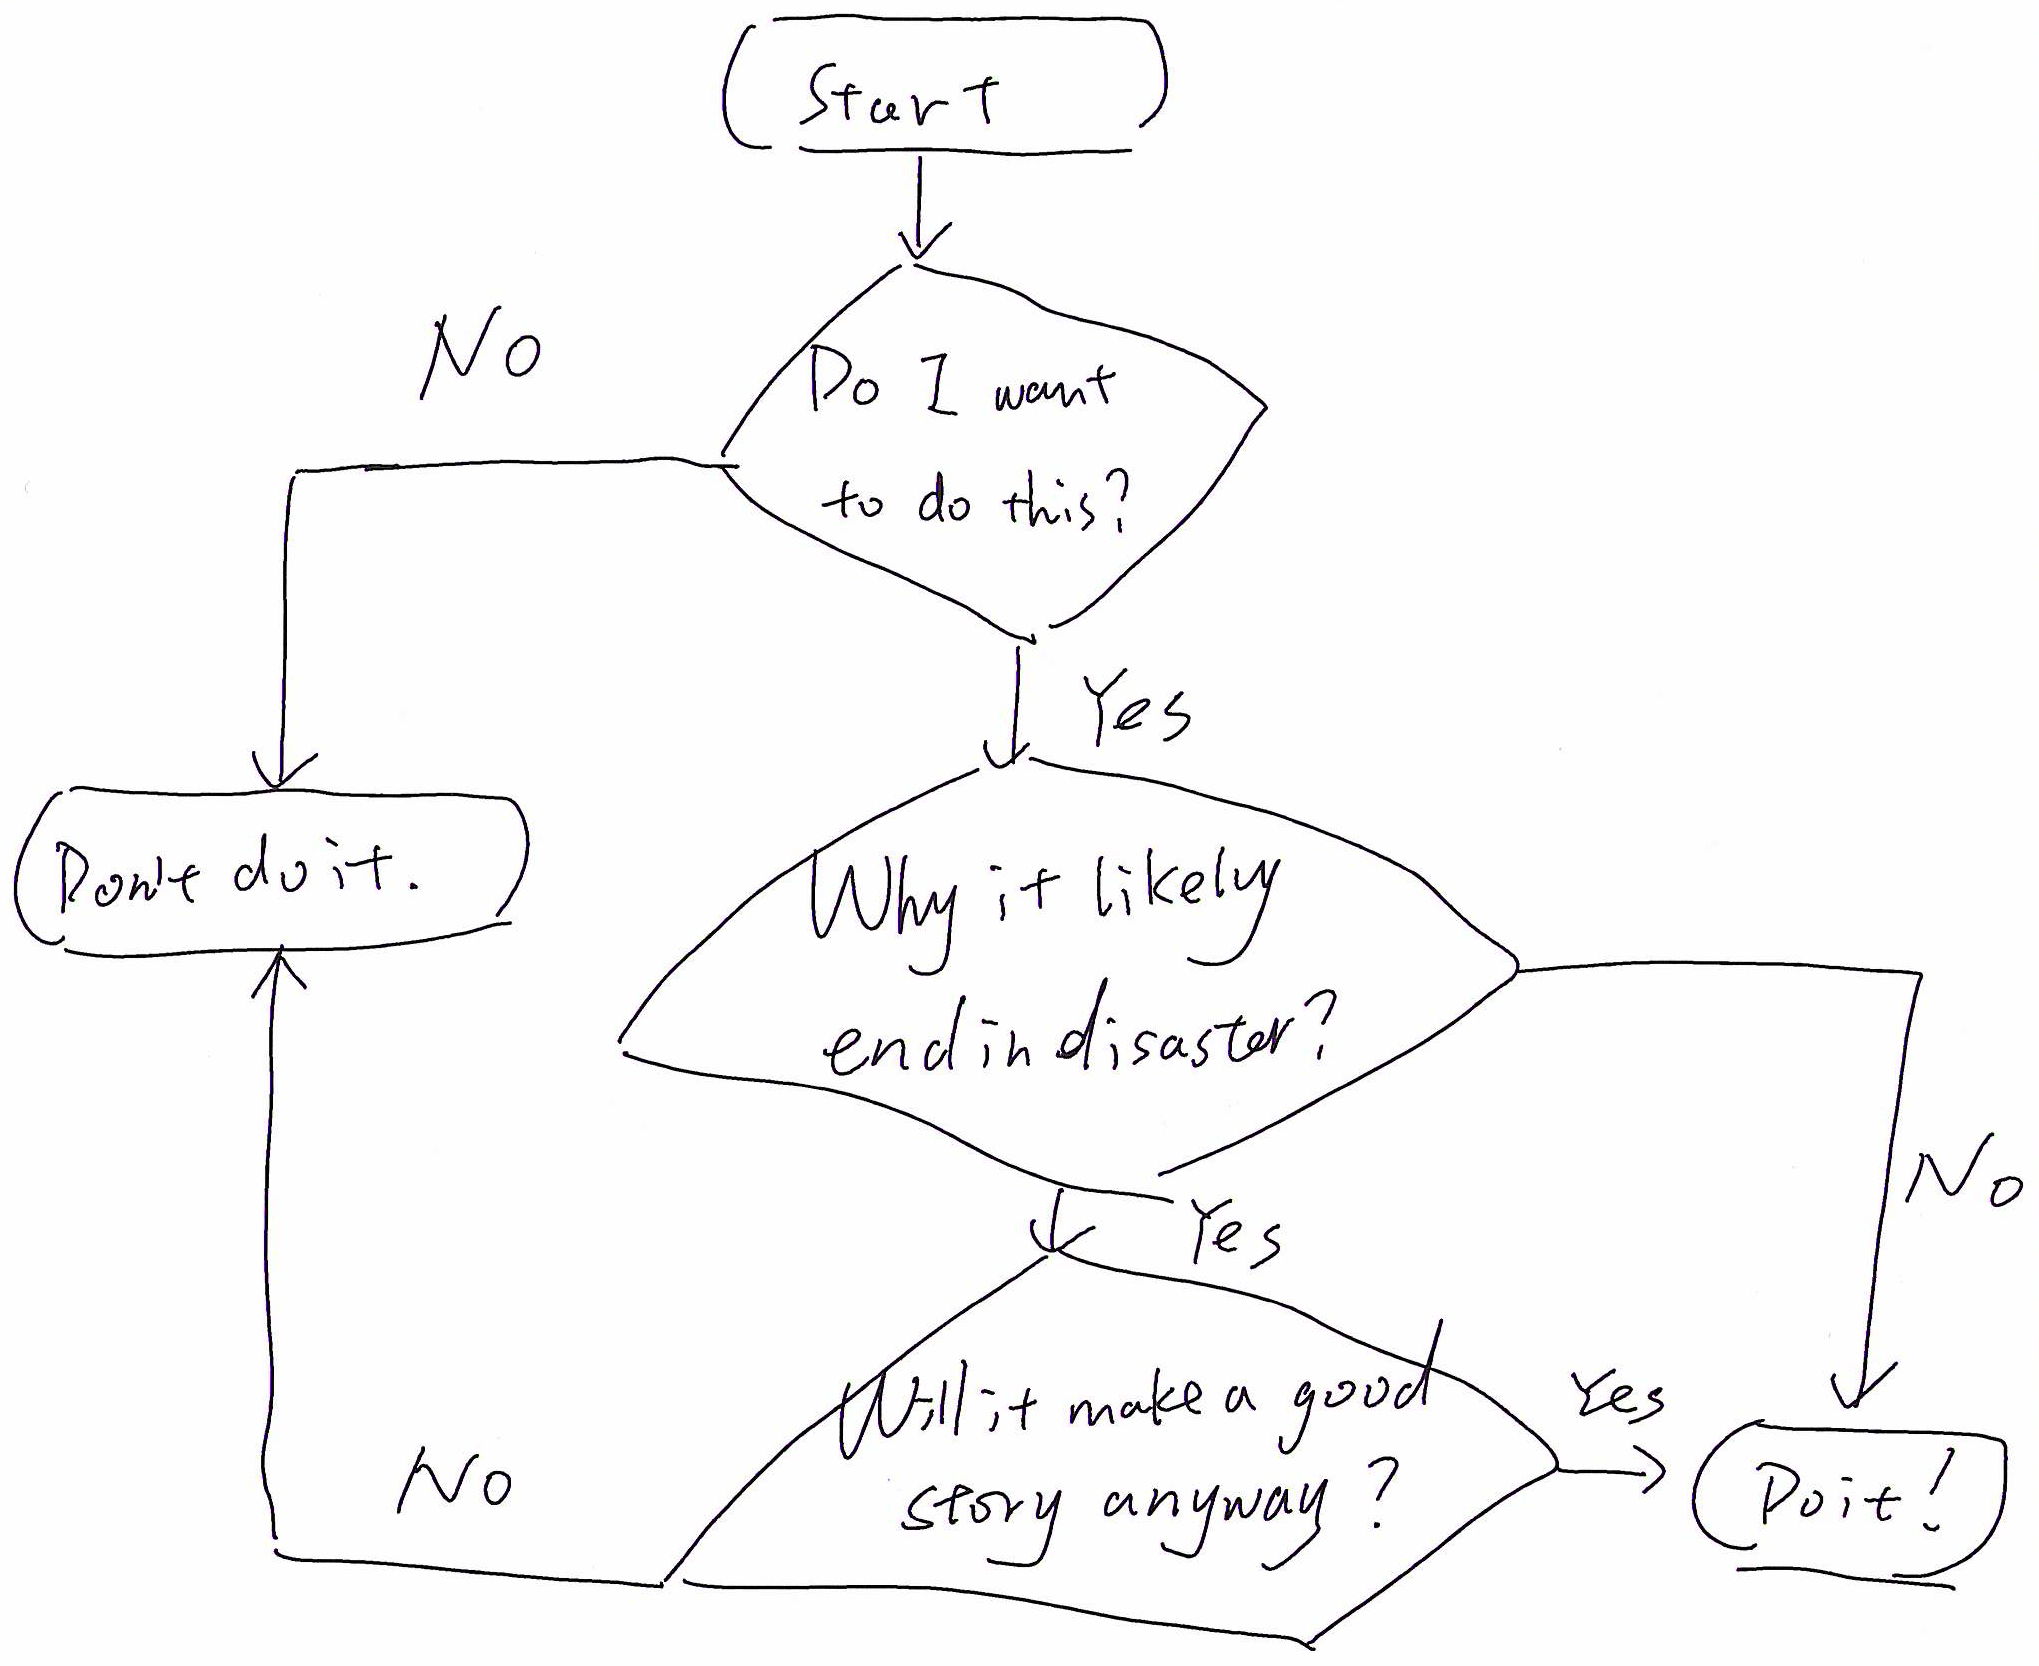 Start
No
Do I want
to do this?
Yes
Don't do it.
Why it likely
end in disaster?
No
Yes
Will it make a good
story anyway?
Yes
No
Do it!